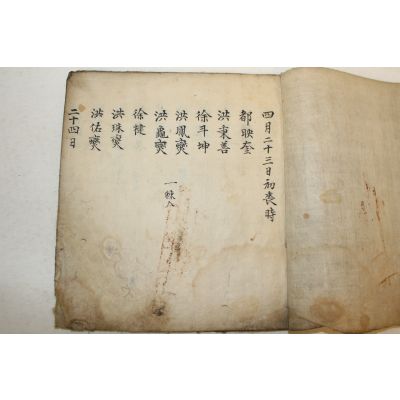 四月二十三日初喪時
都映奎
洪秉善
徐斗坤
洪鳳燮
洪龜燮
徐健
洪珠燮
洪佑燮
二十四日